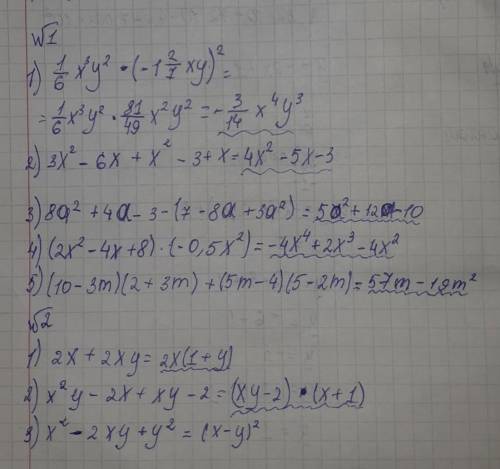 №1
1) 1/6 x³y² · (-1 2/7 xy)² =
= 1/6 x³y² · 81/49 x²y² = -3/14 x⁴y³
2) 3x² - 6x + x² - 3 + x = 4x² - 5x - 3
3) 8a² + 4a - 3 - (7 - 8a + 3a²) = 5a² + 12a - 10
4) (2x² - 4x + 8) · (-0,5x²) = -4x⁴ + 2x³ - 4x²
5) (10 - 3m)(2 + 3m) + (5m - 4)(5 - 2m) = 57m - 19m²
№2
1) 2x + 2xy = 2x(1 + y)
2) x²y - 2x + xy - 2 = (xy - 2) · (x + 1)
3) x² - 2xy + y² = (x - y)²